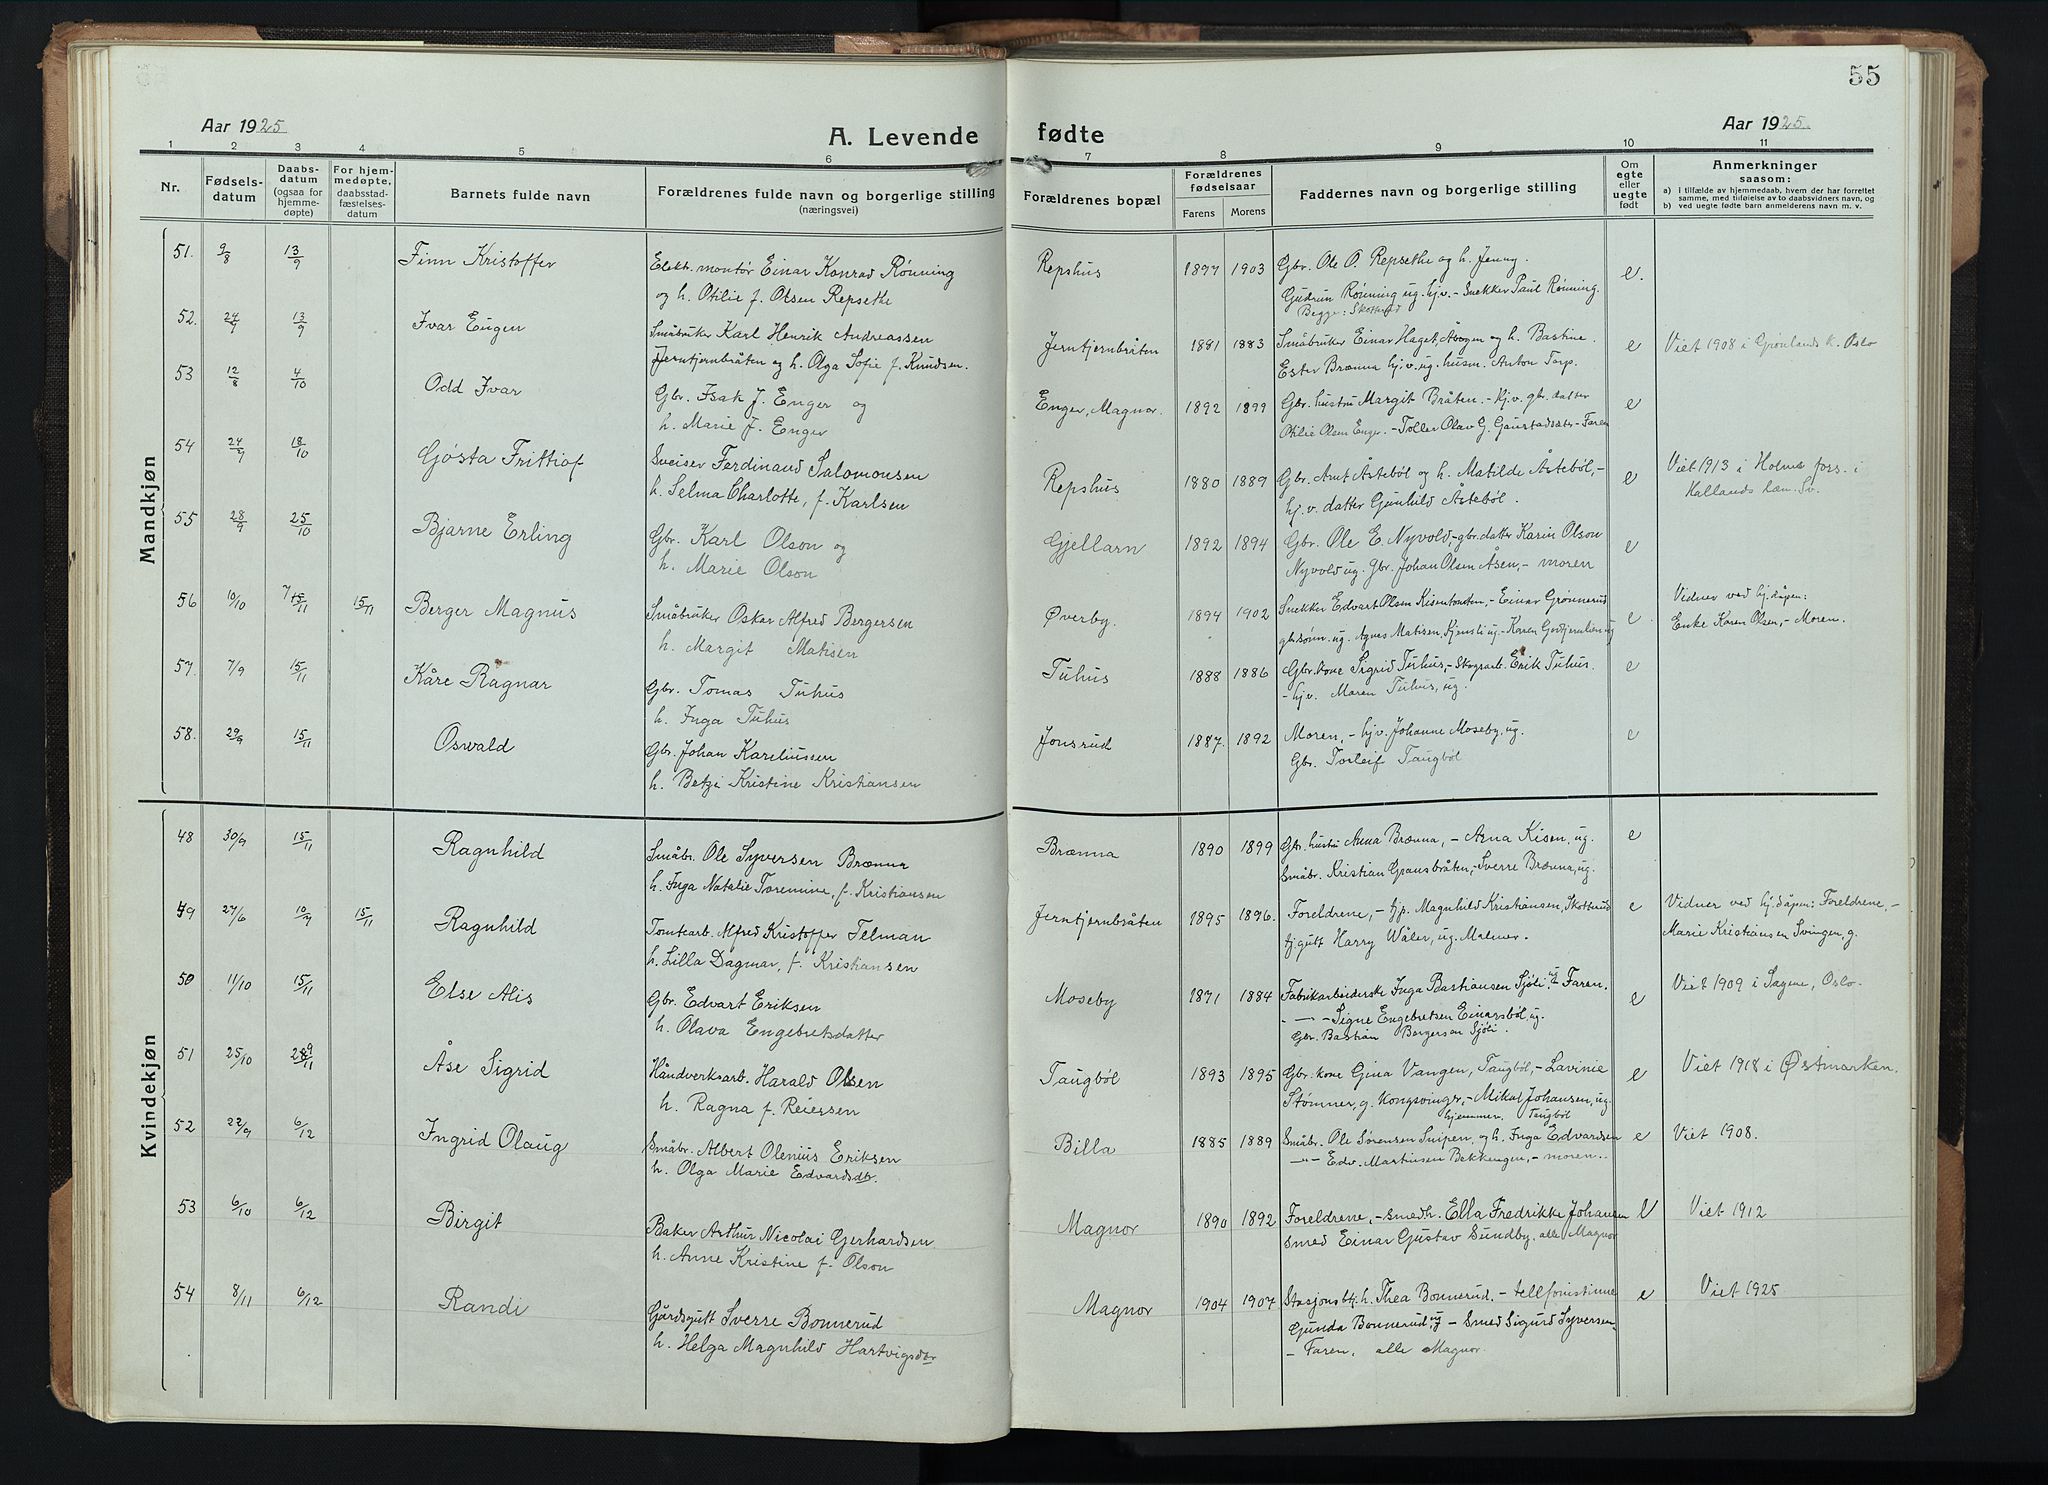 55
Aar 1925
A. Levende fødte
Aar 1925.
1 2 3 4 5 6 7 8 9 10 11
Nr.
Fødsels-
datum
Daabs-
datum
(ogsaa for
hjemme-
døpte)
For hjem-
medøpte,
daabsstad-
fæstelses-
datum
Barnets fulde navn
Forældrenes fulde navn og borgerlige stilling
(næringsvei)
Forældrenes bopæl
Forældrenes
fødselsaar
Farens Morens
Faddernes navn og borgerlige stilling
Om
egte
eller
uegte
født
Anmerkninger
saasom:
a) i tilfælde av hjemmedaab, hvem der har forrettet
samme, med tilføielse av to daabsvidners navn, og
b) ved uegte fødte barn anmelderens navn m. v.
Mandkjøn
51. 9/8 13/9 Finn Kristoffer
Elektr. montør Einar Konrad Rønning
og h. Otilie f. Olsen Repsethe
Repshus 1897 1903
Gbr. Ole O. Repsethe og h. Jenny.
Gudrun Rønning ug. hj.v. – Snekker Paul Rønning.
Begge: Skotterud
e.
52. 24/9 13/9 Ivar Eugen
Småbruker Karl Henrik Andreassen
Jerntjernbråten og h. Olga Sofie f. Knudsen.
Jerntjernbråten 1881 1883
Småbruker Einar Haget, Åbogen og h. Bastine.
Ester Brænna hj.v. ug. husm. Anton Torp.
e Viet 1908 i Grønlands k. Oslo
53 12/8 4/10 Odd Ivar
Gbr. Isak J. Enger og
h. Marie J. Enger
Enger, Magnor. 1892 1899
Gbr. hustru Margit Bråten. – hj.v. gbr. datter
Otilie Olsen Enger. – Toller Olav G. Gaustadsæter – Faren
e
54 24/9 18/10 Gøsta Frittiof
Sveiser Ferdinand Salomonsen
h. Selma Charlotte, f. Karlsen
Repshus 1880 1889
Gbr. Amt Åstebøl og h. Matilde Åstebøl, –
hj. v. datter Gunhild Åstebøl.
e Viet 1913 i Holms fors. i
Hallands læn. Sv.
55 28/9 25/10 Bjarne Erling
Gbr. Karl Olson og
h. Marie Olson
Gjellarn 1892 1894
Gbr. Ole E. Nyvold, – gbr. datter Karin Olson
Nyvold ug. Gbr. Johan Olsen Åsen, – moren
e
56 10/10 15/11 15/11 Berger Magnus
Småbruker Oskar Alfred Bergersen
h. Margit Matisen
Øverby. 1894 1902
Snekker Edvart Olsen Kisentomten, – Einar Grønnerud
gb. sønn. ug. Agnes Matisen, Kjensli ug. – Karen ug
e. Vidner ved hj. dåpen:
Enke Karen Olsen, – Moren.
57. 7/9 15/11 Kåre Ragnar
Gbr. Tomas Tuhus
h. Inga Tuhus
Tuhus 1888 1886
Gbr. kone Sigrid Tuhus, – Skogsarb. Erik Tuhus.
– hj.v. Maren Tuhus, ug.
e
58. 29/9 15/11 Oswald
Gbr. Johan Kareliussen
h. Betzi Kristine Kristiansen
Jonsrud 1887. 1892
Moren, – hj.v. Johanne Moseby, ug.
Gbr. Torleif Taugbøl
e
Kvindekjøn
48 30/9 15/11 Ragnhild
Småbr. Ole Syversen Brænna
h. Inga Natalie Toremine, f. Kristiansen
Brænna 1890 1899
Gbr. hustru Anna Brænna, – Asna Kisen, ug.
Småbr. Kristian Gransbråten, – Sverre Brænna, ug.
e
49 27/6 10/7 15/11 Ragnhild
Tomtearb. Alfred Kristoffer Telman
h. Lilla Dagmar, f. Kristiansen
Jerntjernbråten 1895 1896.
Foreldrene, – tjp. Magnhild Kristiansen, Skotterud
tj. gutt Harry Wåler, ug. Malmer.
e Vidner ved hj. dåpen: Foreldrene, –
Marie Kristiansen Svingen, g.
50 11/10 15/11 Else Alis
Gbr. Edvart Eriksen
h. Olava Engebretsdatter
Moseby 1871 1884
Fabrikarbeiderske Inga Bastiansen Sjøli ug Faren.
– " – Signe Engebretsen Einarsbøl, ug.
Gbr. Bastian Bergersen Sjøli.
e Viet 1909 i Sagene, Oslo.
51 25/10 29/11 Åse Sigrid
Håndverksarb. Harald Olsen
h. Ragna f. Reiersen
Taugbøl 1893 1895
Gbr. kone Gina Vangen, Taugbøl, – Lavinie
Stømner, g. Kongsvinger, – Mikal Johansen, ug.
hjemmev. Taugbøl
e Viet 1918 i Østmarken.
52 22/9 6/12 Ingrid Olaug
Småbr. Albert Olenius Eriksen
h. Olga Marie Edvardsdtr.
Billa 1885 1889
Småbr. Ole Sørensen Snipen, og h. Inga Edvardsen
– " – Edv. Martinsen Bekkengen, – moren.
e Viet 1908.
53 6/10 6/12 Birgit
Baker Arthur Nicolai Gerhardsen
h. Anne Kristine f. Olson
Magnor 1890 1892
Foreldrene, – smedh. Ella Fredrikke Johansen
smed Einar Gustav Sundby. alle Magnor
e Viet 1912
54 8/11 6/12 Randi
Gårdsgutt Sverre Bonnerud
h. Helga Magnhild Hartvigsdtr
Magnor 1904 1907
Stasjonsbtj. h. Thea Bonnerud. – tellfonistinne
Gunda Bonnerud, ug – Smed Sigurd Syversen –
– Faren, alle Magnor.
e Viet 1925